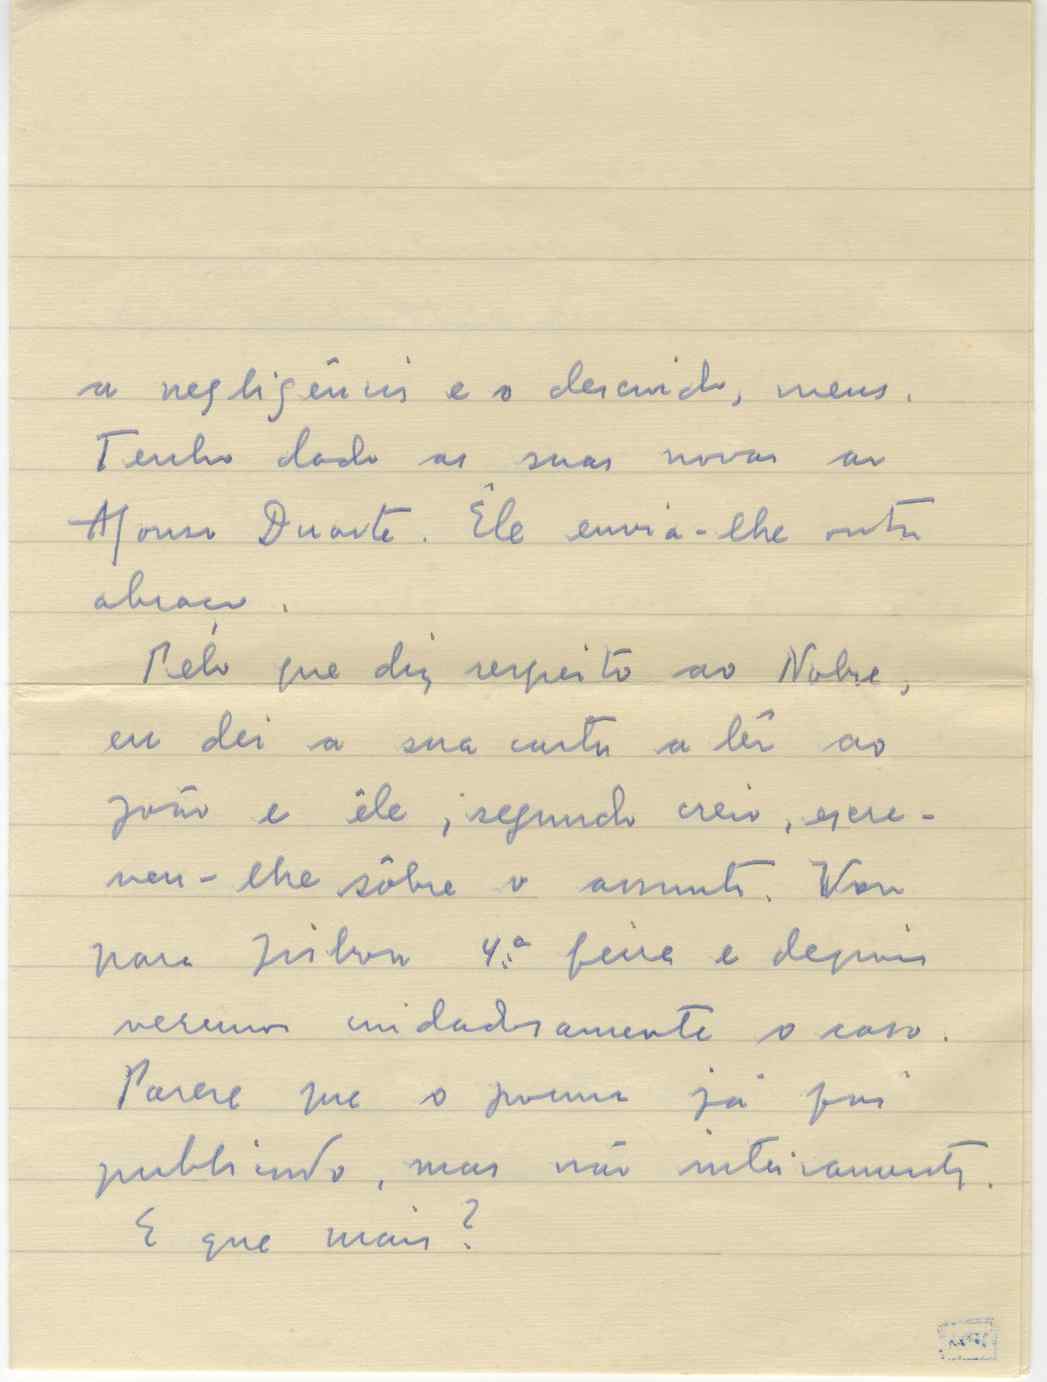 a negligência e o descuido, meus.
Tenho dado as suas novas ao
Afonso Duarte. Êle envia-lhe outro
abraço.
Pelo que diz respeito ao Nobre,
eu dei a sua carta a lêr ao
João e êle, segundo creio, escre-
veu-lhe sôbre o assunto. Vou
para Lisboa 4.ª feira e depois
veremos cuidadosamente o caso.
Parece que o poema já foi
publicado, mas não inteiramente.
E que mais?